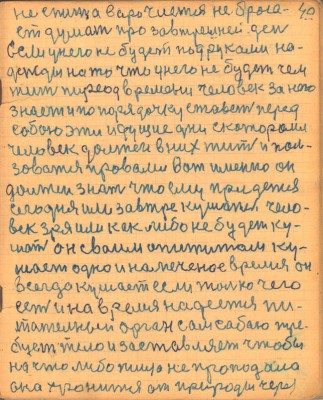 40
не спится варочается не броса-
ет думат про завтрешней ден
Если унего не будет подруками на-
дежди на то что унего не будет чем
жит переод времани человек за ного
знает и по порядочку ставет перед
собою эти идущие дни скоторами
человек должен вних жит и пол-
зоватся провами вот именно он
должен знат что ему придется
сегодня или завтре кушат чело-
век зря или как либо не будет ку-
шат он сваим опититам ку-
шает одно и намеченое время он
всегда кушает если толко чего
ест и на время надеется пи-
тателный орган сам сабою тре-
бует тело и заставляет чтобы
на что либо пища не проподала
она хронится от природы через